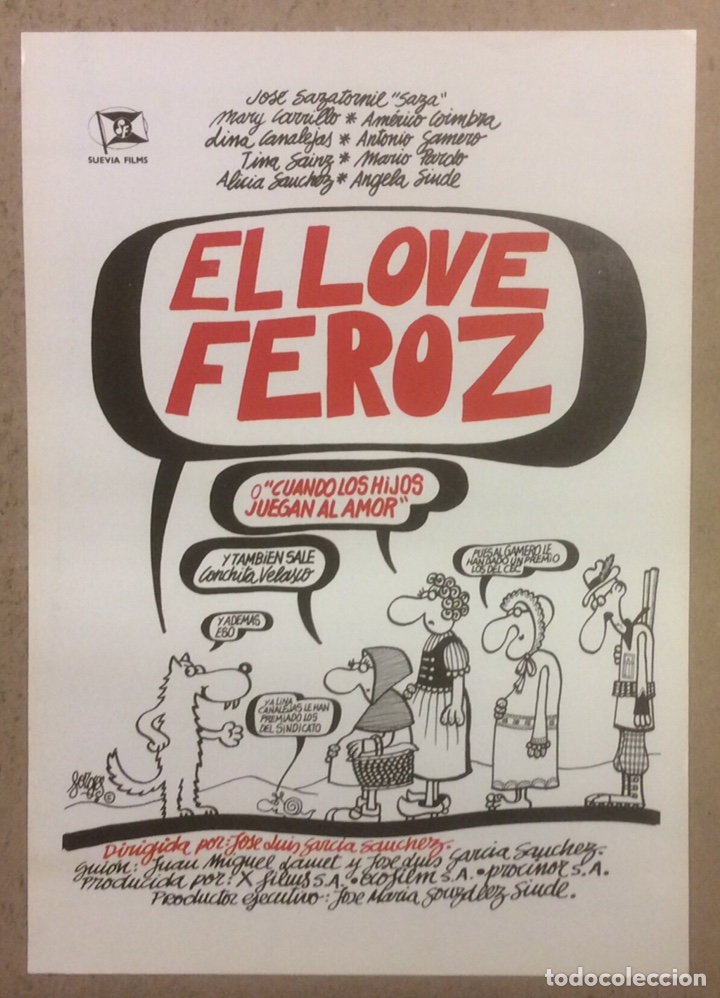 José Sazatornil "Saza"
Mary Carrillo * Américo Coimbra
Lina Canalejas * Antonio Gamero
Tina Sainz * Mario Pardo
Alicia Sanchez * Angela Sinde
SUEVIA FILMS
EL LOVE
FEROZ
O "CUANDO LOS HIJOS
JUEGAN AL AMOR"
Y TAMBIEN SALE
Conchita Velasco
PUES AL GAMERO LE
HAN DADO UN PREMIO
LOS DEL CEC
Y ADEMAS
ESO
Y A LINA
CANALEJAS LE HAN
PREMIADO LOS
DEL SINDICATO
forges
Dirigida por: Jose Luis García Sanchez.
guión: Juan Miguel Lamet y Jose Luis García Sanchez.
Producida por: X films S.A. • ecofilm S.A. • procinor S.A.
Productor ejecutivo: Jose María González Sinde.
todocoleccion